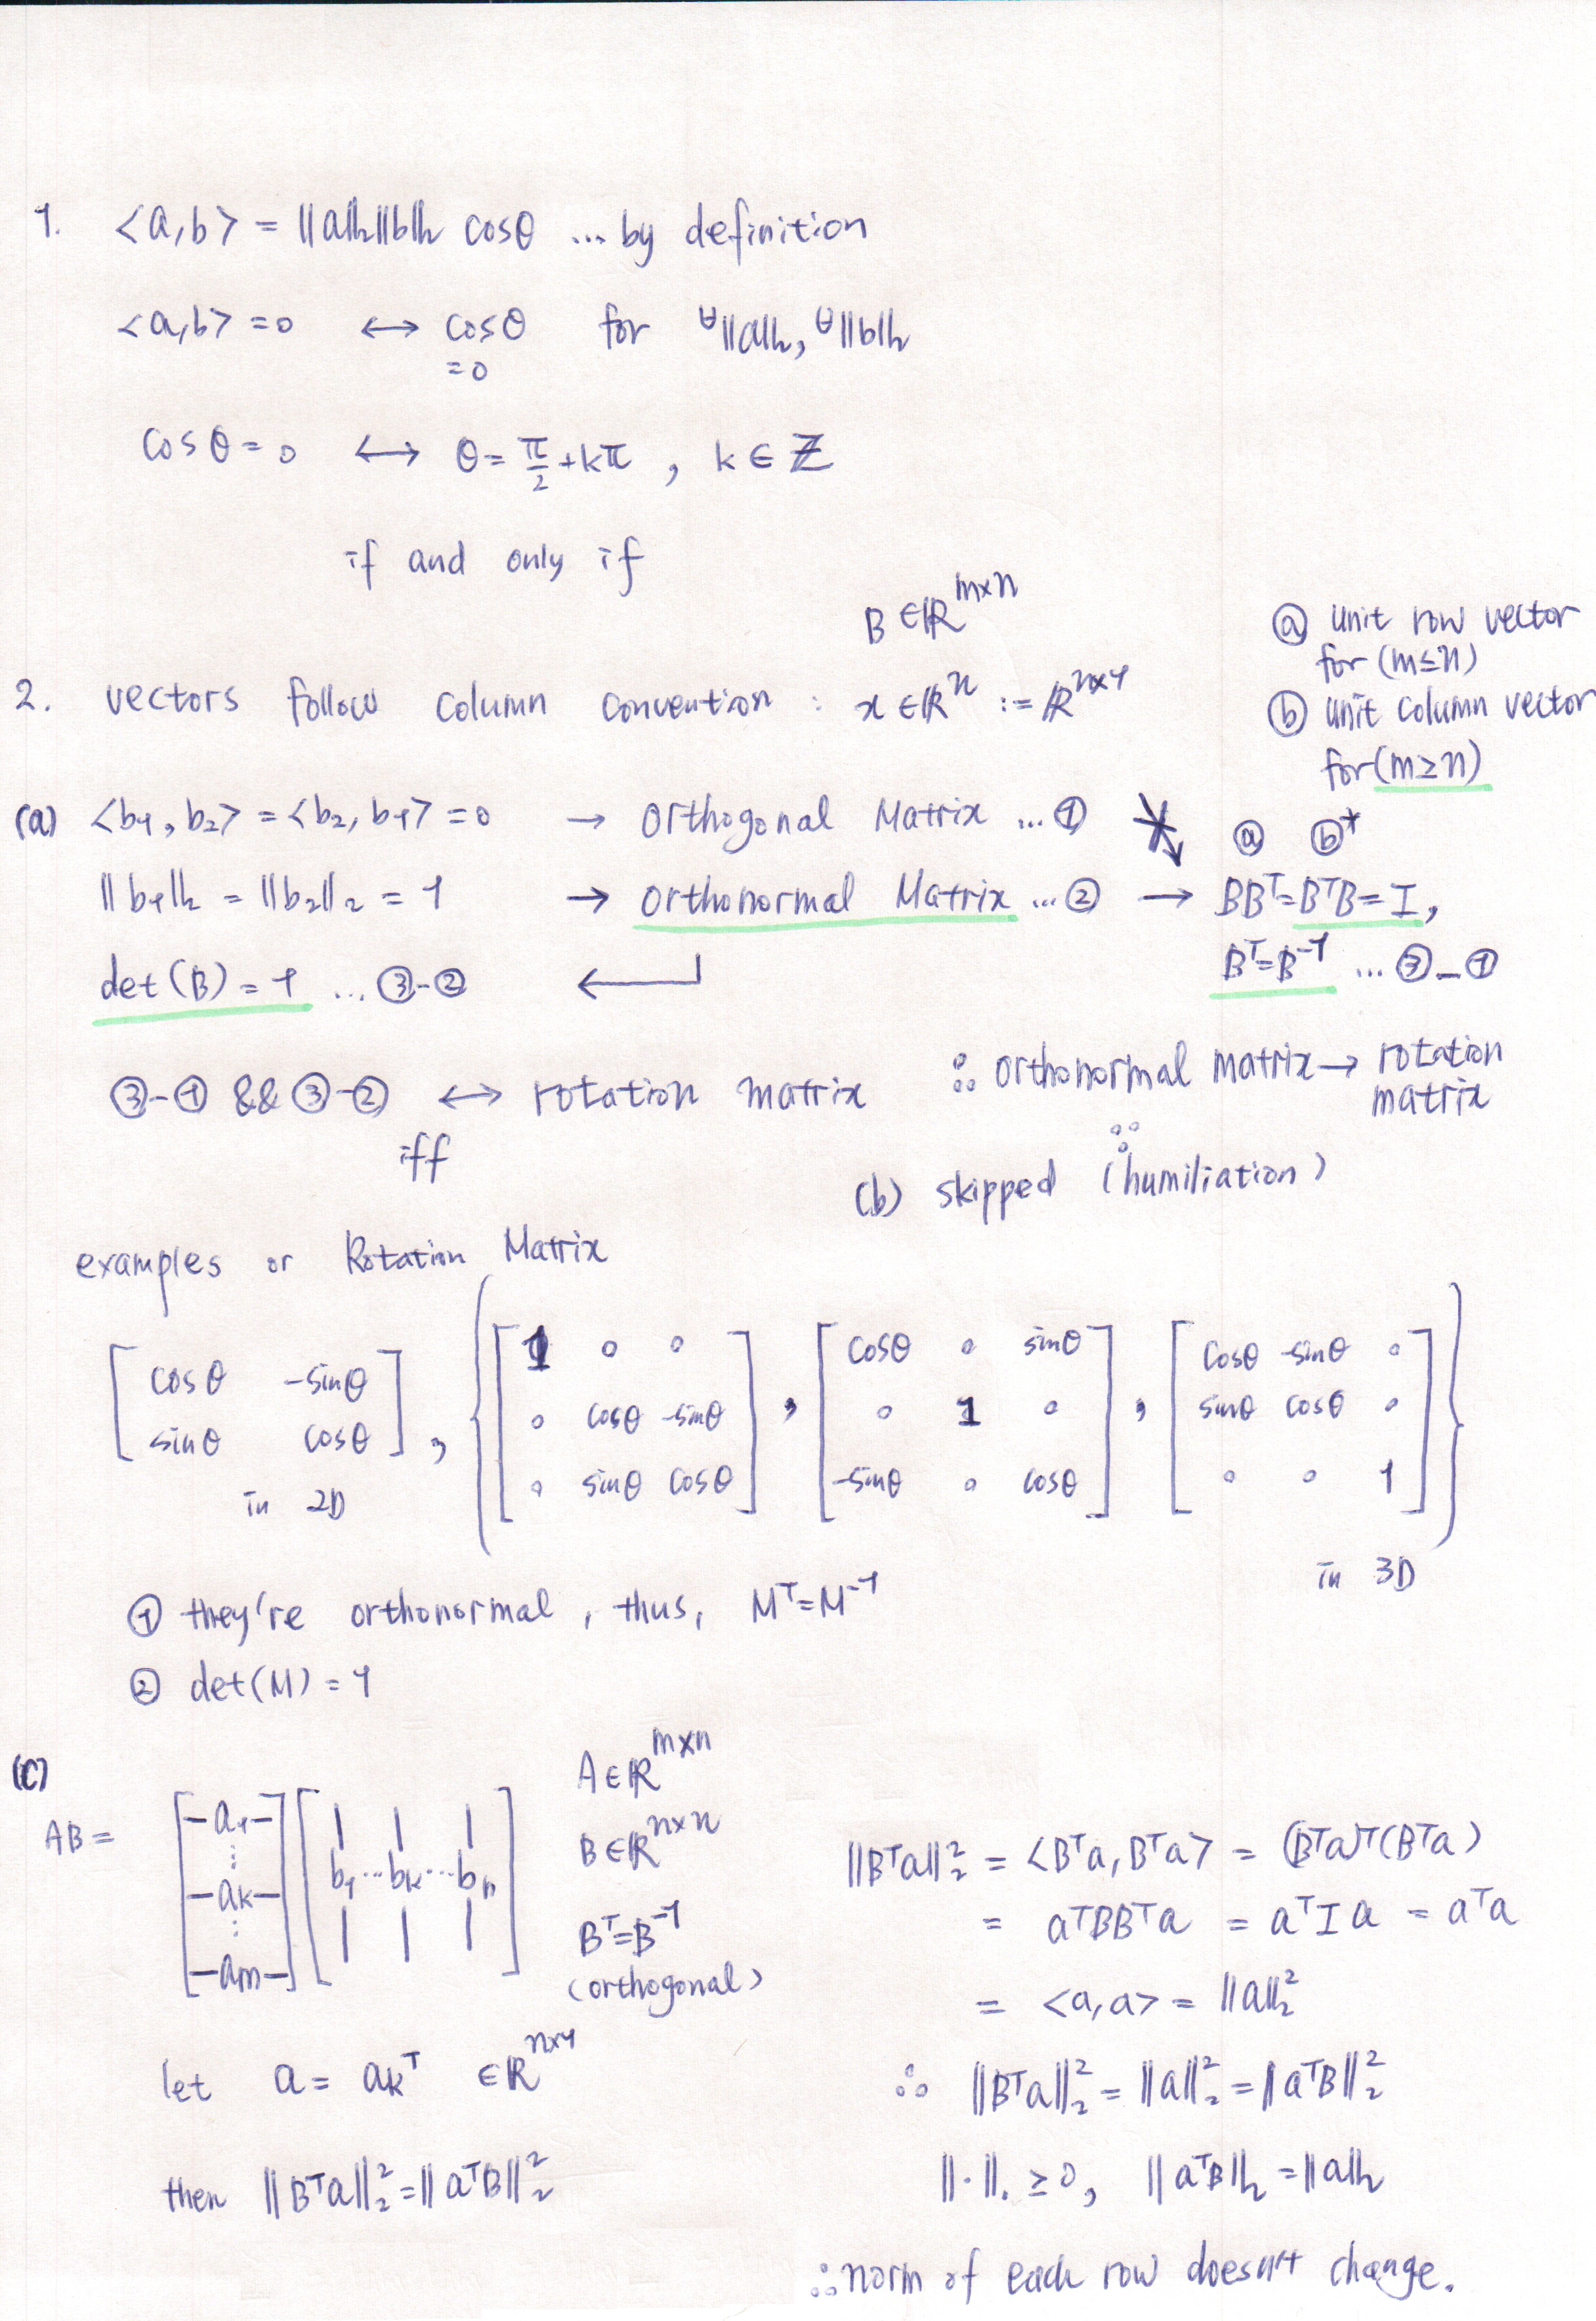 1. <a,b> = ||a||₂||b||₂ cosθ ... by definition
<a,b> = 0 ↔ cosθ = 0 for ∀||a||₂, ∀||b||₂
cosθ = 0 ↔ θ = π/2 + kπ , k ∈ ℤ
if and only if
B ∈ ℝ^{m×n}
2. vectors follow column convention : x ∈ ℝⁿ := ℝ^{n×1}
ⓐ unit row vector
for (m≤n)
ⓑ unit column vector
for (m≥n)
(a) <b₁, b₂> = <b₂, b₁> = 0 → Orthogonal Matrix ... ①
ⓐ ⓑ*
||b₁||₂ = ||b₂||₂ = 1 → Orthonormal Matrix ... ② → BBᵀ = BᵀB = I,
det(B) = 1 ... ③-② ←
Bᵀ = B⁻¹ ... ③-①
③-① && ③-② ↔ rotation matrix
iff
∴ orthonormal matrix → rotation
matrix
(b) skipped (humiliation)
examples or Rotation Matrix
[cosθ -sinθ; sinθ cosθ] , { [1 0 0; 0 cosθ -sinθ; 0 sinθ cosθ] , [cosθ 0 sinθ; 0 1 0; -sinθ 0 cosθ] , [cosθ -sinθ 0; sinθ cosθ 0; 0 0 1] }
in 2D
in 3D
① they're orthonormal, thus, Mᵀ = M⁻¹
② det(M) = 1
(c)
AB = [—a₁— ⋮ —aₖ— ⋮ —aₘ—] [b₁ ... bₖ ... bₙ]
A ∈ ℝ^{m×n}
B ∈ ℝ^{n×n}
Bᵀ = B⁻¹
(orthogonal)
let a = aₖᵀ ∈ ℝ^{n×1}
then ||Bᵀa||₂² = ||aᵀB||₂²
||Bᵀa||₂² = <Bᵀa, Bᵀa> = (Bᵀa)ᵀ(Bᵀa)
= aᵀBBᵀa = aᵀIa = aᵀa
= <a,a> = ||a||₂²
∴ ||Bᵀa||₂² = ||a||₂² = ||aᵀB||₂²
||·||. ≥ 0, ||aᵀB||₂ = ||a||₂
∴ norm of each row doesn't change.